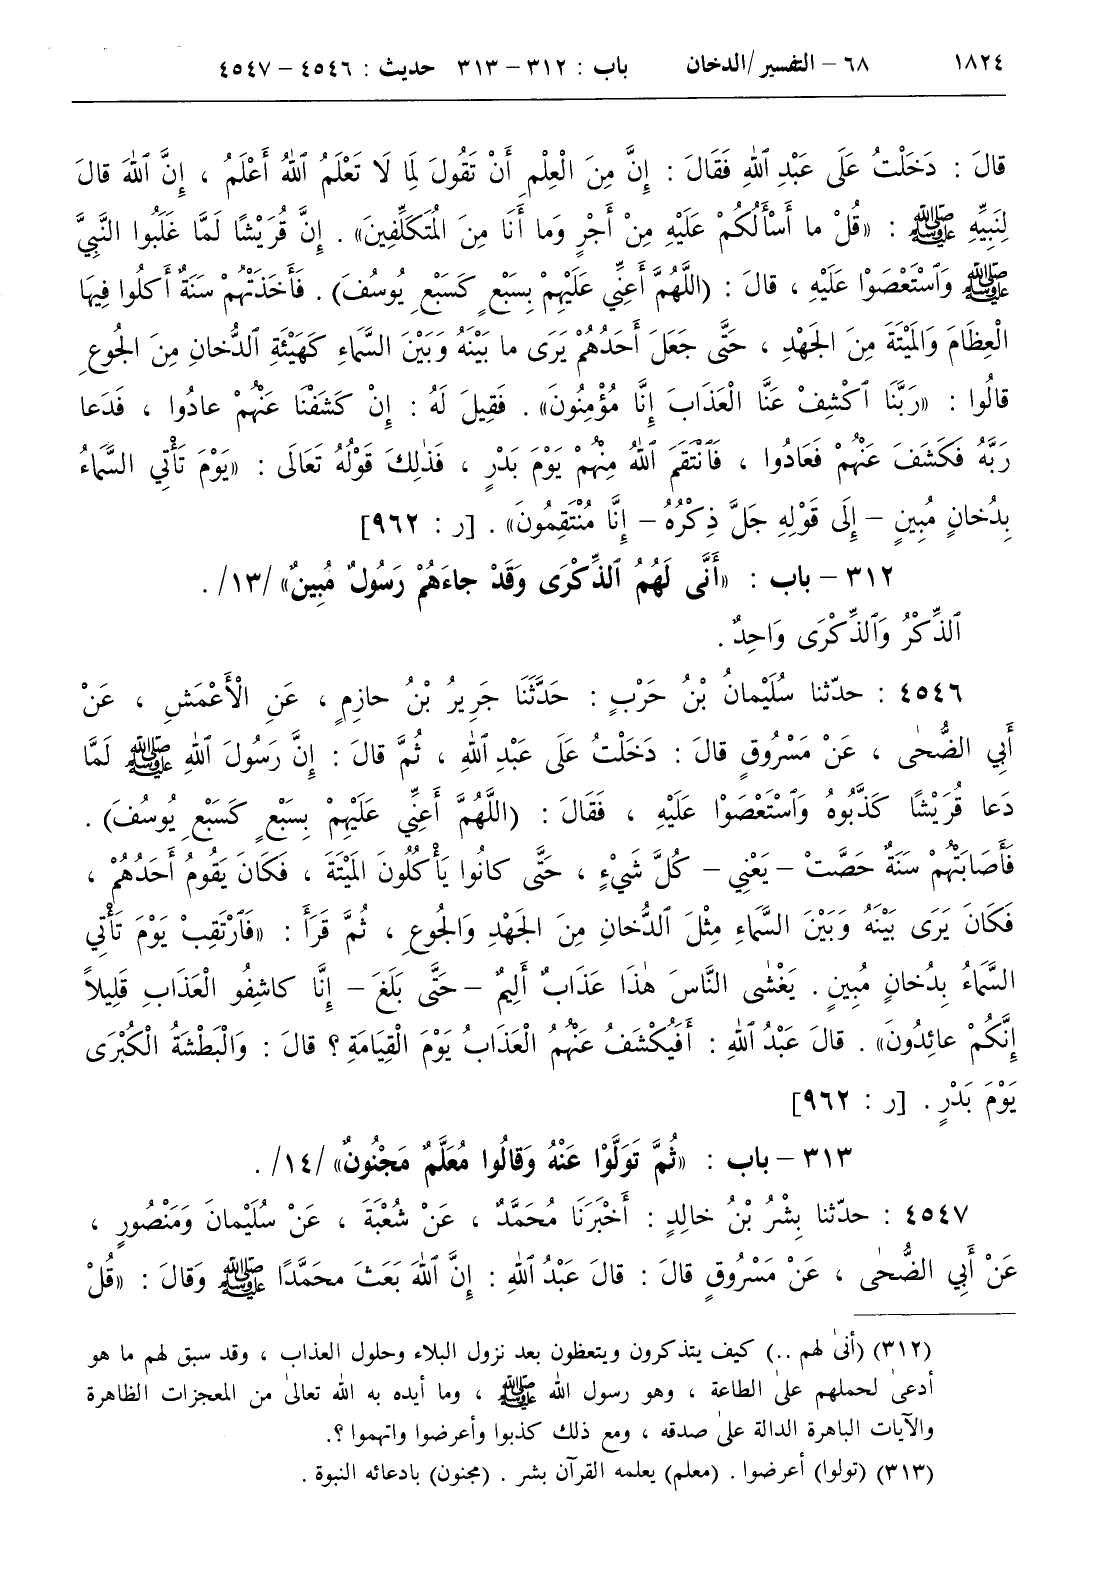 ١٨٢٤ ٦٨ - التفسير / الدخان باب : ٣١٢ - ٣١٣ حديث : ٤٥٤٦ - ٤٥٤٧
قالَ : دَخَلْتُ عَلَى عَبْدِ ٱللهِ فَقَالَ : إِنَّ مِنَ الْعِلْمِ أَنْ تَقُولَ لِمَا لَا تَعْلَمُ ٱللهُ أَعْلَمُ ، إِنَّ ٱللهَ قالَ
لِنَبِيِّهِ ﷺ : «قُلْ ما أَسْأَلُكُمْ عَلَيْهِ مِنْ أَجْرٍ وَما أَنَا مِنَ الْمُتَكَلِّفِينَ» . إِنَّ قُرَيْشًا لَمَّا غَلَبُوا النَّبِيَّ
ﷺ وَٱسْتَعْصَوْا عَلَيْهِ ، قالَ : (اللَّهُمَّ أَعِنِّي عَلَيْهِمْ بِسَبْعٍ كَسَبْعِ يُوسُفَ) . فَأَخَذَتْهُمْ سَنَةٌ أَكَلُوا فِيهَا
الْعِظَامَ وَالْمَيْتَةَ مِنَ الجَهْدِ ، حَتَّى جَعَلَ أَحَدُهُمْ يَرَى ما بَيْنَهُ وَبَيْنَ السَّمَاءِ كَهَيْئَةِ ٱلدُّخانِ مِنَ الجُوعِ
قالُوا : «رَبَّنَا ٱكْشِفْ عَنَّا الْعَذَابَ إِنَّا مُؤْمِنُونَ» . فَقِيلَ لَهُ : إِنْ كَشَفْنَا عَنْهُمْ عادُوا ، فَدَعا
رَبَّهُ فَكَشَفَ عَنْهُمْ فَعَادُوا ، فَٱنْتَقَمَ ٱللهُ مِنْهُمْ يَوْمَ بَدْرٍ ، فَذٰلِكَ قَوْلُهُ تَعَالَى : «يَوْمَ تَأْتِي السَّمَاءُ
بِدُخانٍ مُبِينٍ - إِلَى قَوْلِهِ جَلَّ ذِكْرُهُ - إِنَّا مُنْتَقِمُونَ» . [ر : ٩٦٢]
٣١٢ - باب : «أَنَّى لَهُمُ ٱلذِّكْرَى وَقَدْ جاءَهُمْ رَسُولٌ مُبِينٌ» /١٣/ .
ٱلذِّكْرُ وَٱلذِّكْرَى وَاحِدٌ .
٤٥٤٦ : حدّثنا سُلَيْمانُ بْنُ حَرْبٍ : حَدَّثَنَا جَرِيرُ بْنُ حازِمٍ ، عَنِ الْأَعْمَشِ ، عَنْ
أَبِي الضُّحٰى ، عَنْ مَسْرُوقٍ قالَ : دَخَلْتُ عَلَى عَبْدِ ٱللهِ ، ثُمَّ قالَ : إِنَّ رَسُولَ ٱللهِ ﷺ لَمَّا
دَعا قُرَيْشًا كَذَّبُوهُ وَٱسْتَعْصَوْا عَلَيْهِ ، فَقَالَ : (اللَّهُمَّ أَعِنِّي عَلَيْهِمْ بِسَبْعٍ كَسَبْعِ يُوسُفَ) .
فَأَصَابَتْهُمْ سَنَةٌ حَصَّتْ - يَعْنِي - كُلَّ شَيْءٍ ، حَتَّى كانُوا يَأْكُلُونَ الْمَيْتَةَ ، فَكَانَ يَقُومُ أَحَدُهُمْ ،
فَكَانَ يَرَى بَيْنَهُ وَبَيْنَ السَّمَاءِ مِثْلَ ٱلدُّخانِ مِنَ الجَهْدِ وَالجُوعِ ، ثُمَّ قَرَأَ : «فَٱرْتَقِبْ يَوْمَ تَأْتِي
السَّمَاءُ بِدُخانٍ مُبِينٍ . يَغْشٰى النَّاسَ هٰذَا عَذَابٌ أَلِيمٌ - حَتَّى بَلَغَ - إِنَّا كاشِفُو الْعَذَابِ قَلِيلاً
إِنَّكُمْ عائِدُونَ» . قالَ عَبْدُ ٱللهِ : أَفَيُكْشَفُ عَنْهُمُ الْعَذَابُ يَوْمَ الْقِيَامَةِ ؟ قالَ : وَالْبَطْشَةُ الْكُبْرَى
يَوْمَ بَدْرٍ . [ر : ٩٦٢]
٣١٣ - باب : «ثُمَّ تَوَلَّوْا عَنْهُ وَقالُوا مُعَلَّمٌ مَجْنُونٌ» /١٤/ .
٤٥٤٧ : حدّثنا بِشْرُ بْنُ خالِدٍ : أَخْبَرَنَا مُحَمَّدٌ ، عَنْ شُعْبَةَ ، عَنْ سُلَيْمانَ وَمَنْصُورٍ ،
عَنْ أَبِي الضُّحٰى ، عَنْ مَسْرُوقٍ قالَ : قالَ عَبْدُ ٱللهِ : إِنَّ ٱللهَ بَعَثَ محَمَّدًا ﷺ وَقالَ : «قُلْ
(٣١٢) (أنىٰ لهم ..) كيف يتذكرون ويتعظون بعد نزول البلاء وحلول العذاب ، وقد سبق لهم ما هو
أدعىٰ لحملهم علىٰ الطاعة ، وهو رسول الله ﷺ ، وما أيده به الله تعالىٰ من المعجزات الظاهرة
والآيات الباهرة الدالة علىٰ صدقه ، ومع ذلك كذبوا وأعرضوا واتهموا ؟.
(٣١٣) (تولوا) أعرضوا . (معلم) يعلمه القرآن بشر . (مجنون) بادعائه النبوة .